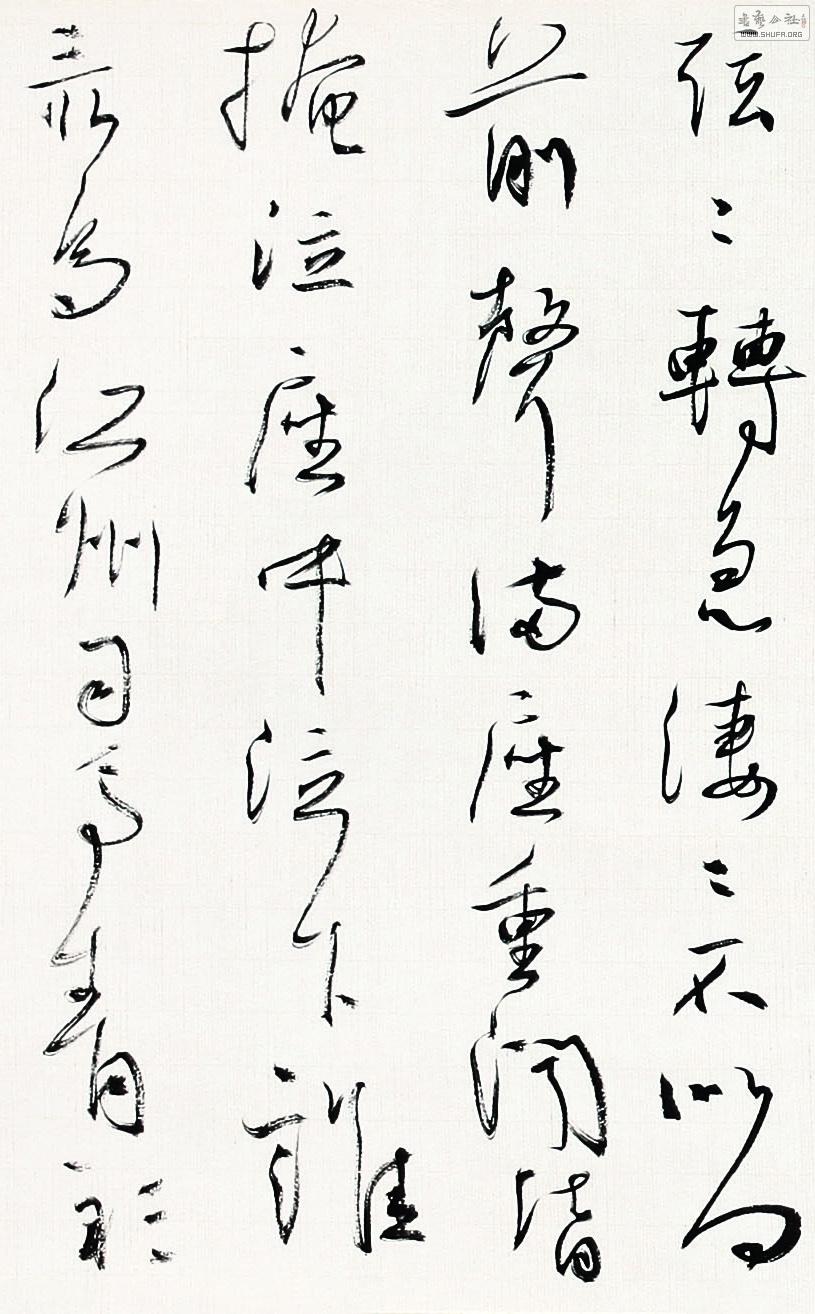 弦〻轉急淒〻不似向
前聲滿座重聞皆
掩泣座中泣下誰
最多江州司馬青衫
書藝公社
WWW.SHUFA.ORG